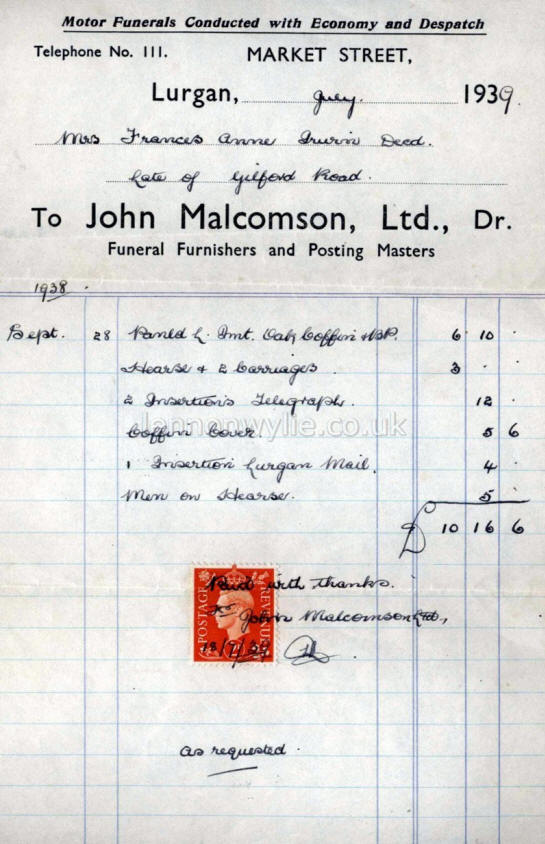 Motor Funerals Conducted with Economy and Despatch
Telephone No. 111.
MARKET STREET,
Lurgan, July. 1939.
Mrs Frances Anne Irwin Decd.
Late of Gilford Road.
To John Malcomson, Ltd., Dr.
Funeral Furnishers and Posting Masters
1938.
Sept. 28 Panld L. Imt. Oak Coffin 6 10 .
Hearse & 2 Carriages. 3 . .
2 Insertions Telegraph. 12 .
iannonwylie.co.uk
Coffin Cover. 5 6
1 Insertion Lurgan Mail. 4 .
Men on Hearse. 5 .
£ 10 16 6
POSTAGE REVENUE
Paid with thanks.
For John Malcomson Ltd,
18/7/39
as requested.